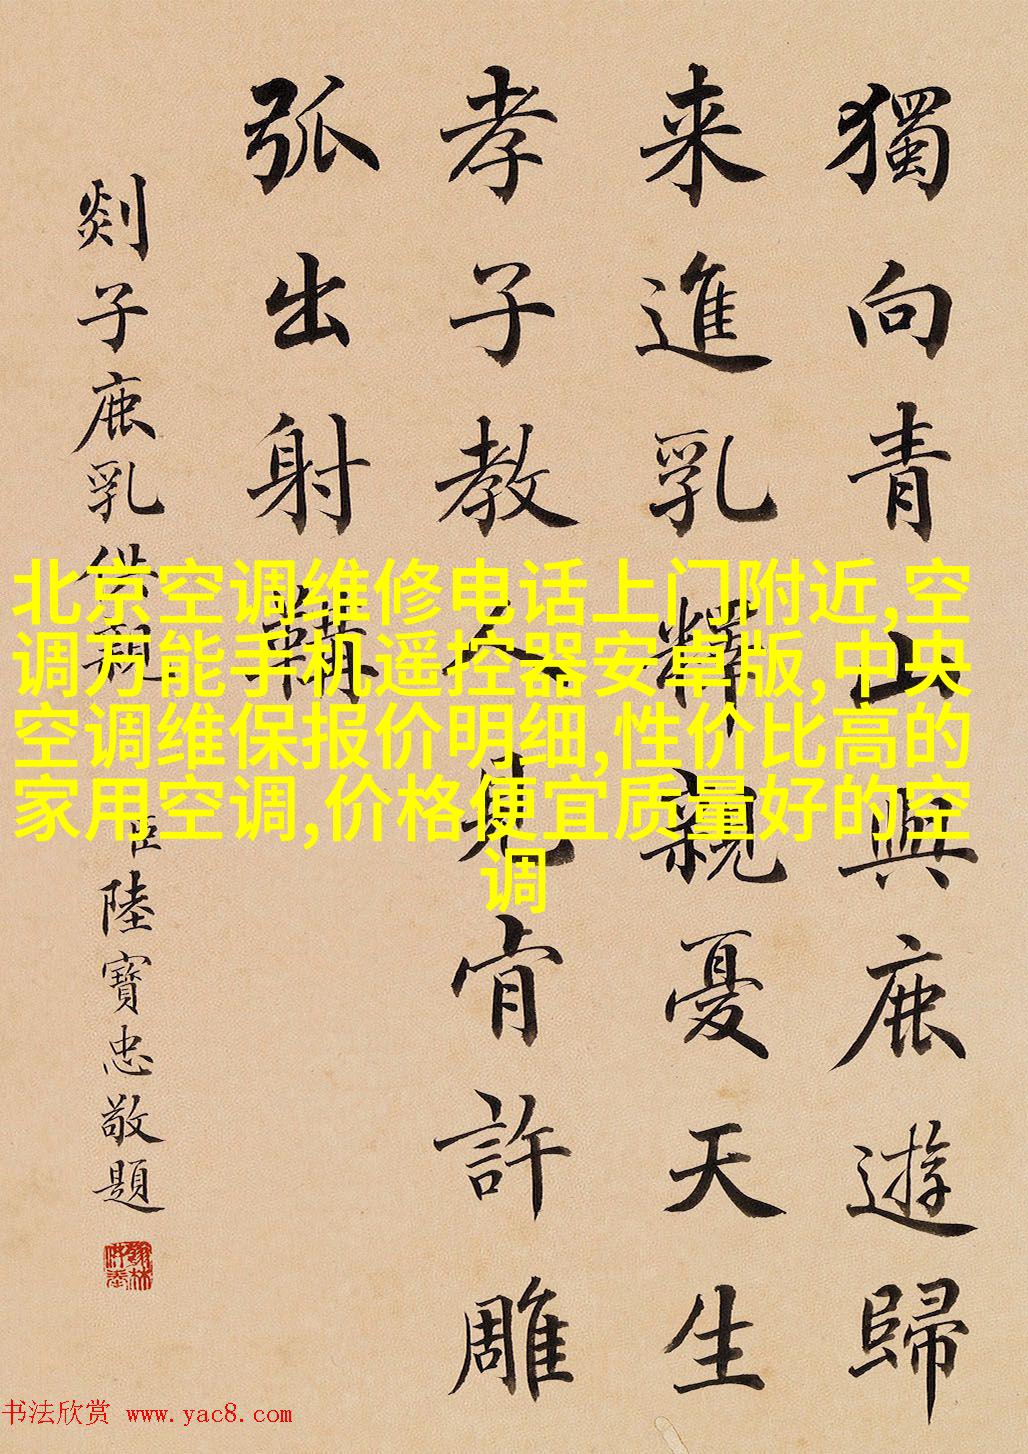 獨向青山與鹿遊歸
来進乳釋親憂天生
孝子教人見肯許雕
弧出射鞲
剡子鹿乳供親
臣陸寶忠敬題
北京空调维修电话上门附近,空
调万能手机遥控器安卓版,中央
空调维保报价明细,性价比高的
家用空调,价格便宜质量好的空
调
书法欣赏 www.yac8.com